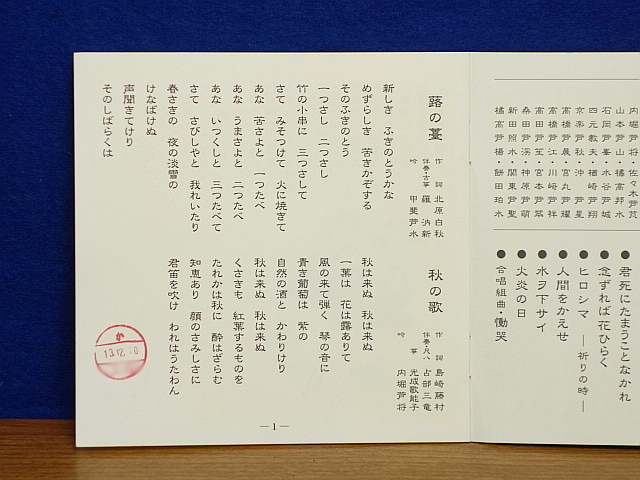 内堀芦将・佐々木芦范
山本芦山・橘高邦水
石岡芦峯・水谷芦城
四元教夫・楢崎芦翔
京楽芦秋・沖 芦星
高橋芦晨・宮丸芦耀
高橋芦江・川崎芦祥
高田芦笙・宮本芦
桑田芦渓・神原芦萌
新田照水・関東芦聖
橘高芦楊・餅田珀水
●君死にたまうことなかれ
●念ずれば花ひらく
●ヒロシマ ―祈りの時―
●人間をかえせ
●水ヲ下サイ
●火炎の日
●合唱組曲・慟哭
蕗の薹
作詞 北原白秋
伴奏・古箏 羅洵新
吟 甲斐芦水
新しき ふきのとうかな
めずらしき 苦きかぞする
そのふきのとう
一つさし 二つさし
竹の小串に 三つさして
さて みそつけて 火に焼きて
あな 苦さよと 一つたべ
あな うまさよと 二つたべ
あな いつくしと 三つたべて
さて さびしやと 我れいたり
春さきの 夜の淡雪の
けなばけぬ
声聞きてけり
そのしばらくは
秋の歌
作詞 島崎藤村
伴奏・尺八 占部三竜
箏 光成歌能子
吟 内堀芦将
秋は来ぬ 秋は来ぬ
一葉は 花は露ありて
風の来て弾く 琴の音に
青き葡萄は 紫の
自然の酒と かわりけり
秋は来ぬ 秋は来ぬ
くさきも 紅葉するものを
たれかは秋に 酔はざらむ
知恵あり 顔のさみしさに
君笛を吹け われはうたわん
か
13.12.10
―1―